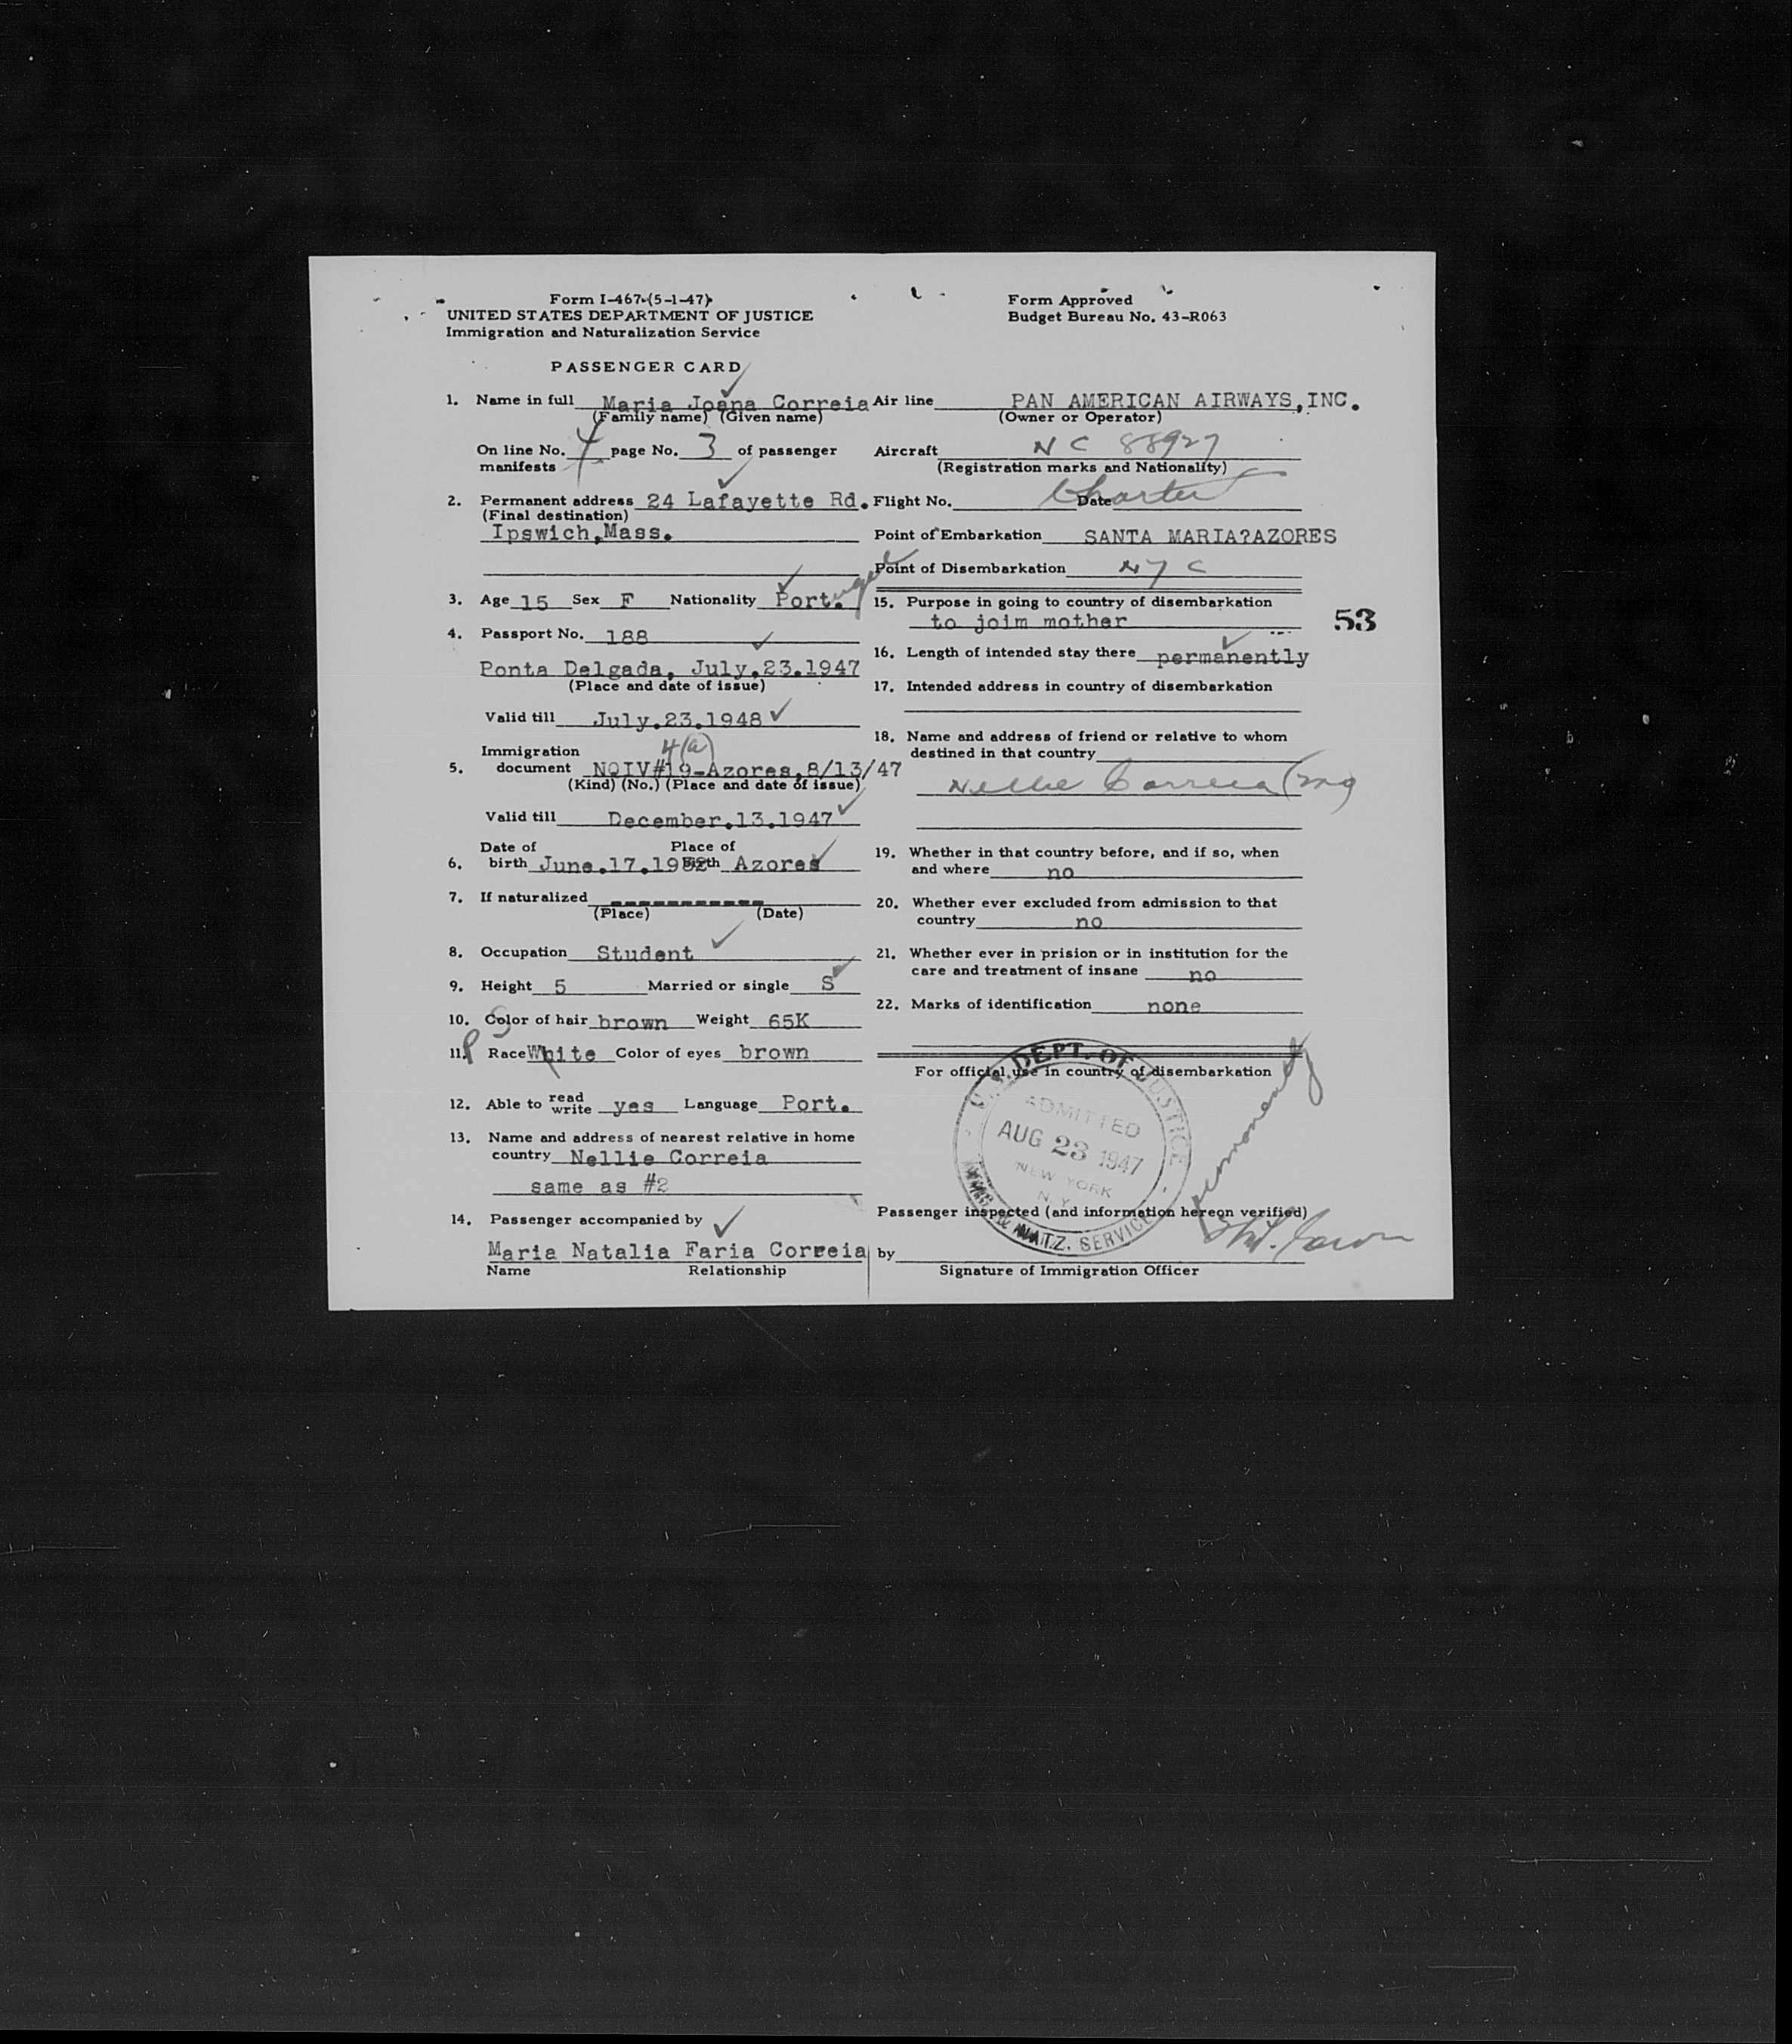 Form I-467 (5-1-47)
UNITED STATES DEPARTMENT OF JUSTICE
Immigration and Naturalization Service
PASSENGER CARD
1. Name in full Maria Joana Correia
(Family name) (Given name)
On line No. 4 page No. 3 of passenger
manifests
2. Permanent address 24 Lafayette Rd.
(Final destination)
Ipswich,Mass.
3. Age 15 Sex F Nationality Port.
4. Passport No. 188
Ponta Delgada, July.23.1947
(Place and date of issue)
Valid till July.23.1948
4(a)
Immigration
5. document NQIV#19-Azores,8/13/47
(Kind) (No.) (Place and date of issue)
Valid till December.13.1947
Date of Place of
6. birth June.17.1932 birth Azores
7. If naturalized -----------
(Place) (Date)
8. Occupation Student
9. Height 5 Married or single S
10. Color of hair brown Weight 65K
11. Race White Color of eyes brown
12. Able to read write yes Language Port.
13. Name and address of nearest relative in home
country Nellie Correia
same as #2
14. Passenger accompanied by
Maria Natalia Faria Correia
Name Relationship
Form Approved
Budget Bureau No. 43-R063
Air line PAN AMERICAN AIRWAYS,INC.
(Owner or Operator)
Aircraft NC 88927
(Registration marks and Nationality)
Flight No. Charter Date
Point of Embarkation SANTA MARIA?AZORES
Point of Disembarkation NYC
15. Purpose in going to country of disembarkation
to joim mother
53
16. Length of intended stay there permanently
17. Intended address in country of disembarkation
18. Name and address of friend or relative to whom
destined in that country
Nellie Correia
19. Whether in that country before, and if so, when
and where no
20. Whether ever excluded from admission to that
country no
21. Whether ever in prision or in institution for the
care and treatment of insane no
22. Marks of identification none
For official use in country of disembarkation
U.S. DEPT. OF JUSTICE
ADMITTED
AUG 23 1947
NEW YORK
N.Y.
IMMIG. & NATZ. SERVICE
permanently
Passenger inspected (and information hereon verified)
by
Signature of Immigration Officer